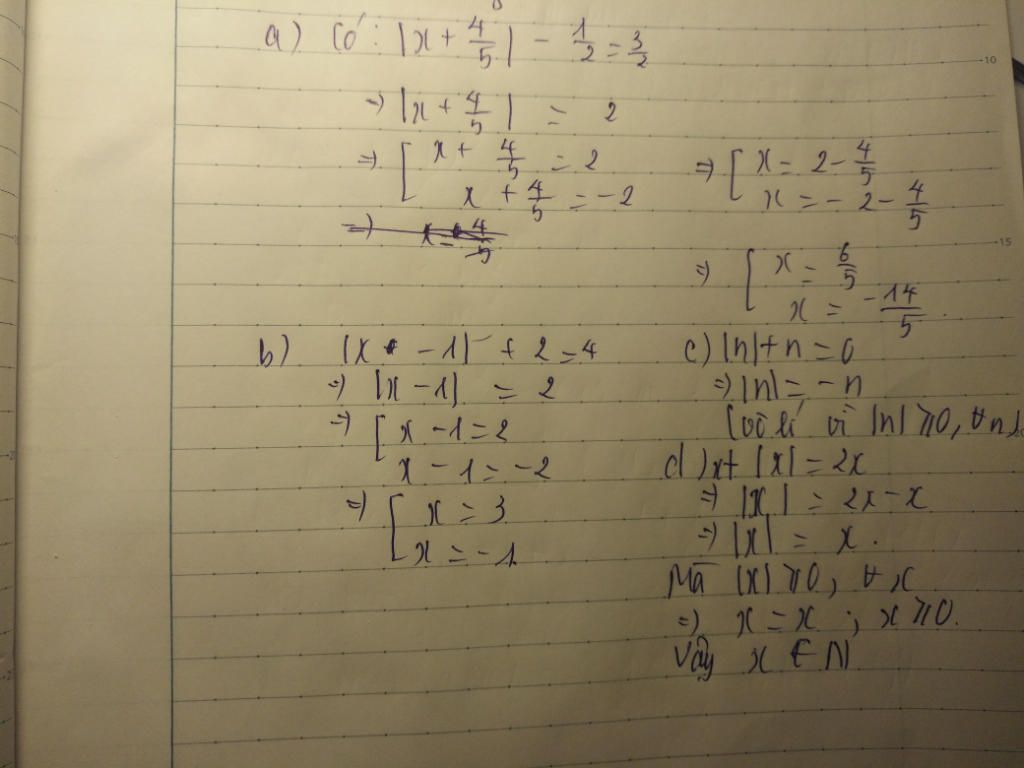 a) Có: |x + 4/5| - 1/2 = 3/2
=> |x + 4/5| = 2
=> [ x + 4/5 = 2
x + 4/5 = -2
=> x = 4/5
=> [ x = 2 - 4/5
x = -2 - 4/5
=> [ x = 6/5
x = -14/5.
b) |x - 1| + 2 = 4
=> |x - 1| = 2
=> [ x - 1 = 2
x - 1 = -2
=> [ x = 3
x = -1
c) |n| + n = 0
=> |n| = -n
(vô lí vì |n| ≥ 0, ∀n)
d) x + |x| = 2x
=> |x| = 2x - x
=> |x| = x.
Mà |x| ≥ 0, ∀x
=> x = x ; x ≥ 0.
Vậy x ∈ N